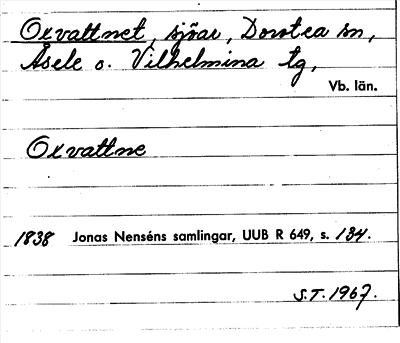 Oxvattnet, sjöar, Dorotea sn,
Åsele o. Vilhelmina tg,
Vb. län.
Oxvattne
1838 Jonas Nenséns samlingar, UUB R 649, s. 134.
S.T. 1967.